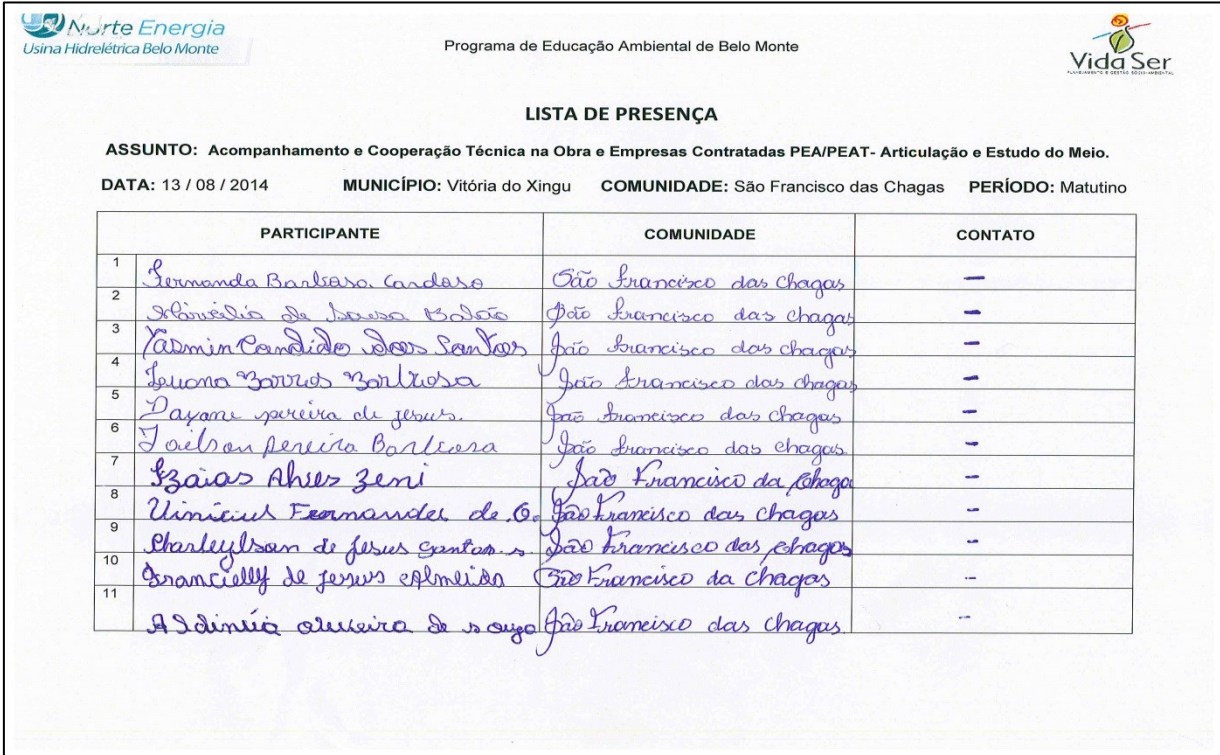 Norte Energia
Usina Hidrelétrica Belo Monte
Programa de Educação Ambiental de Belo Monte
Vida Ser
PLANEJAMENTO E GESTÃO SÓCIO-AMBIENTAL
LISTA DE PRESENÇA
ASSUNTO: Acompanhamento e Cooperação Técnica na Obra e Empresas Contratadas PEA/PEAT- Articulação e Estudo do Meio.
DATA: 13 / 08 / 2014 MUNICÍPIO: Vitória do Xingu COMUNIDADE: São Francisco das Chagas PERÍODO: Matutino
PARTICIPANTE COMUNIDADE CONTATO
1 Fernanda Barbosa Cardoso São Francisco das Chagas –
2 de Sousa São Francisco das chagas –
3 Yasmin Candido dos Santos São Francisco das chagas –
4 Barros Barbosa São Francisco das chagas –
5 Dayane pereira de jesus. São Francisco das chagas –
6 Joelson pereira Barbosa São Francisco das chagas. –
7 Izaias Alves Zeni São Francisco da Chaga –
8 Vinicius Fernandes de. O. São Francisco das chagas –
9 de Jesus santos. s. São Francisco das chagas –
10 Francielly de jesus almeida São Francisco da Chagas –
11 oliveira de souza São Francisco das chagas. –